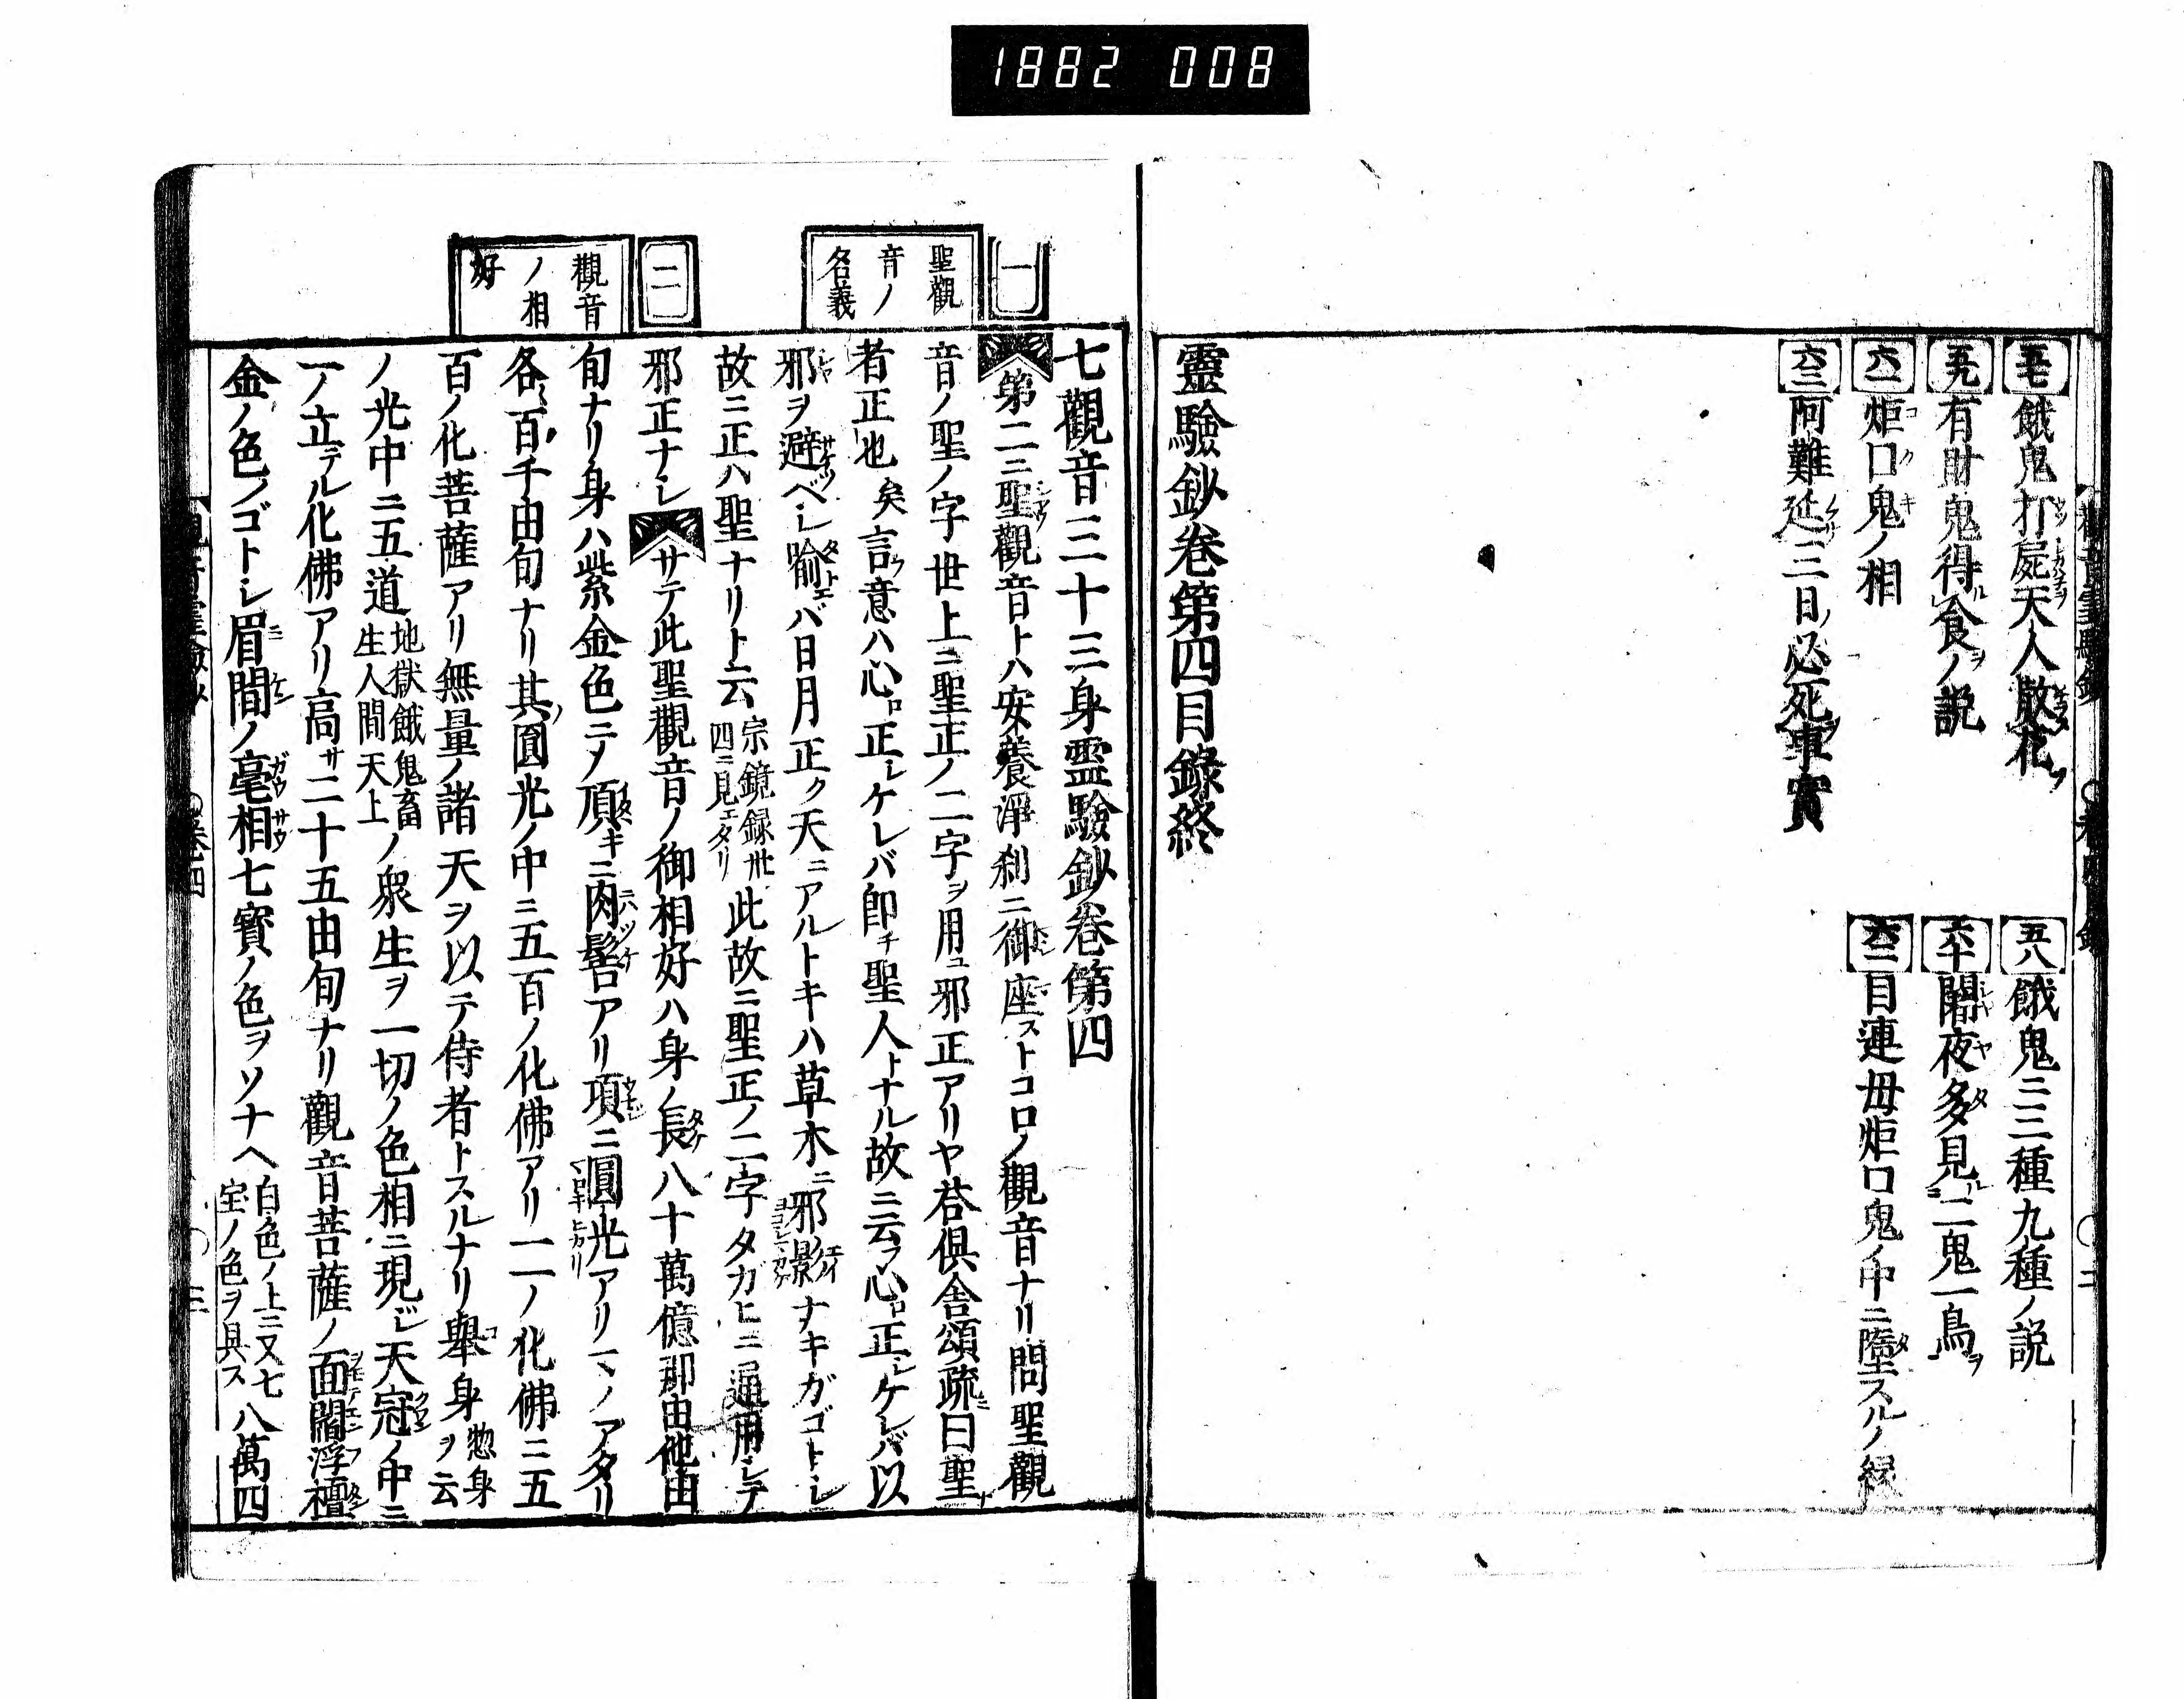 1882 008
五七 餓鬼打屍天人散花
五八 餓鬼ニ三種九種ノ説
五九 有財鬼得食ノ説
六十 闍夜多見二鬼一鳥
六一 炬口鬼ノ相
六二 目連母炬口鬼ノ中ニ墮スルノ縁
六三 阿難延三日必死事實
靈驗鈔卷第四目錄終
一
聖觀
音ノ
名義
二
觀音
ノ相
好
七觀音三十三身靈驗鈔卷第四
第二ニ聖觀音トハ安養淨刹ニ御座ストコロノ觀音ナリ問聖觀
音ノ聖ノ字世上ニ聖正ノ二字ヲ用ユ邪正アリヤ荅倶舍頌疏曰聖
者正也矣言意ハ心正シケレバ即チ聖人トナル故ニ云フ心正シケレバ以
邪ヲ避ベシ喩バ日月正ク天ニアルトキハ草木ニ邪影ナキガゴトシ
故ニ正ハ聖ナリト云宗鏡録卅四ニ見エタリ此故ニ聖正ノ二字タカヒニ通用シテ
邪正ナシサテ此聖觀音ノ御相好ハ身ノ長八十萬億那由他由
旬ナリ身ハ紫金色ニノ頂キニ肉髻アリ項ニ圓光アリ一々ノアタリ
各百千由旬ナリ其圓光ノ中ニ五百ノ化佛アリ一一ノ化佛ニ五
百ノ化菩薩アリ無量ノ諸天ヲ以テ侍者トスルナリ舉身惣身ヲ云
ノ光中ニ五道地獄餓鬼畜生人間天上ノ衆生ヲ一切ノ色相ニ現ジ天冠ノ中ニ
一ノ立テル化佛アリ高サ二十五由旬ナリ觀音菩薩ノ面閻浮檀
金ノ色ノゴトシ眉間ノ毫相七寳ノ色ヲソナヘ白色ノ上ニ又七宝ノ色ヲ具ス八萬四
卷四